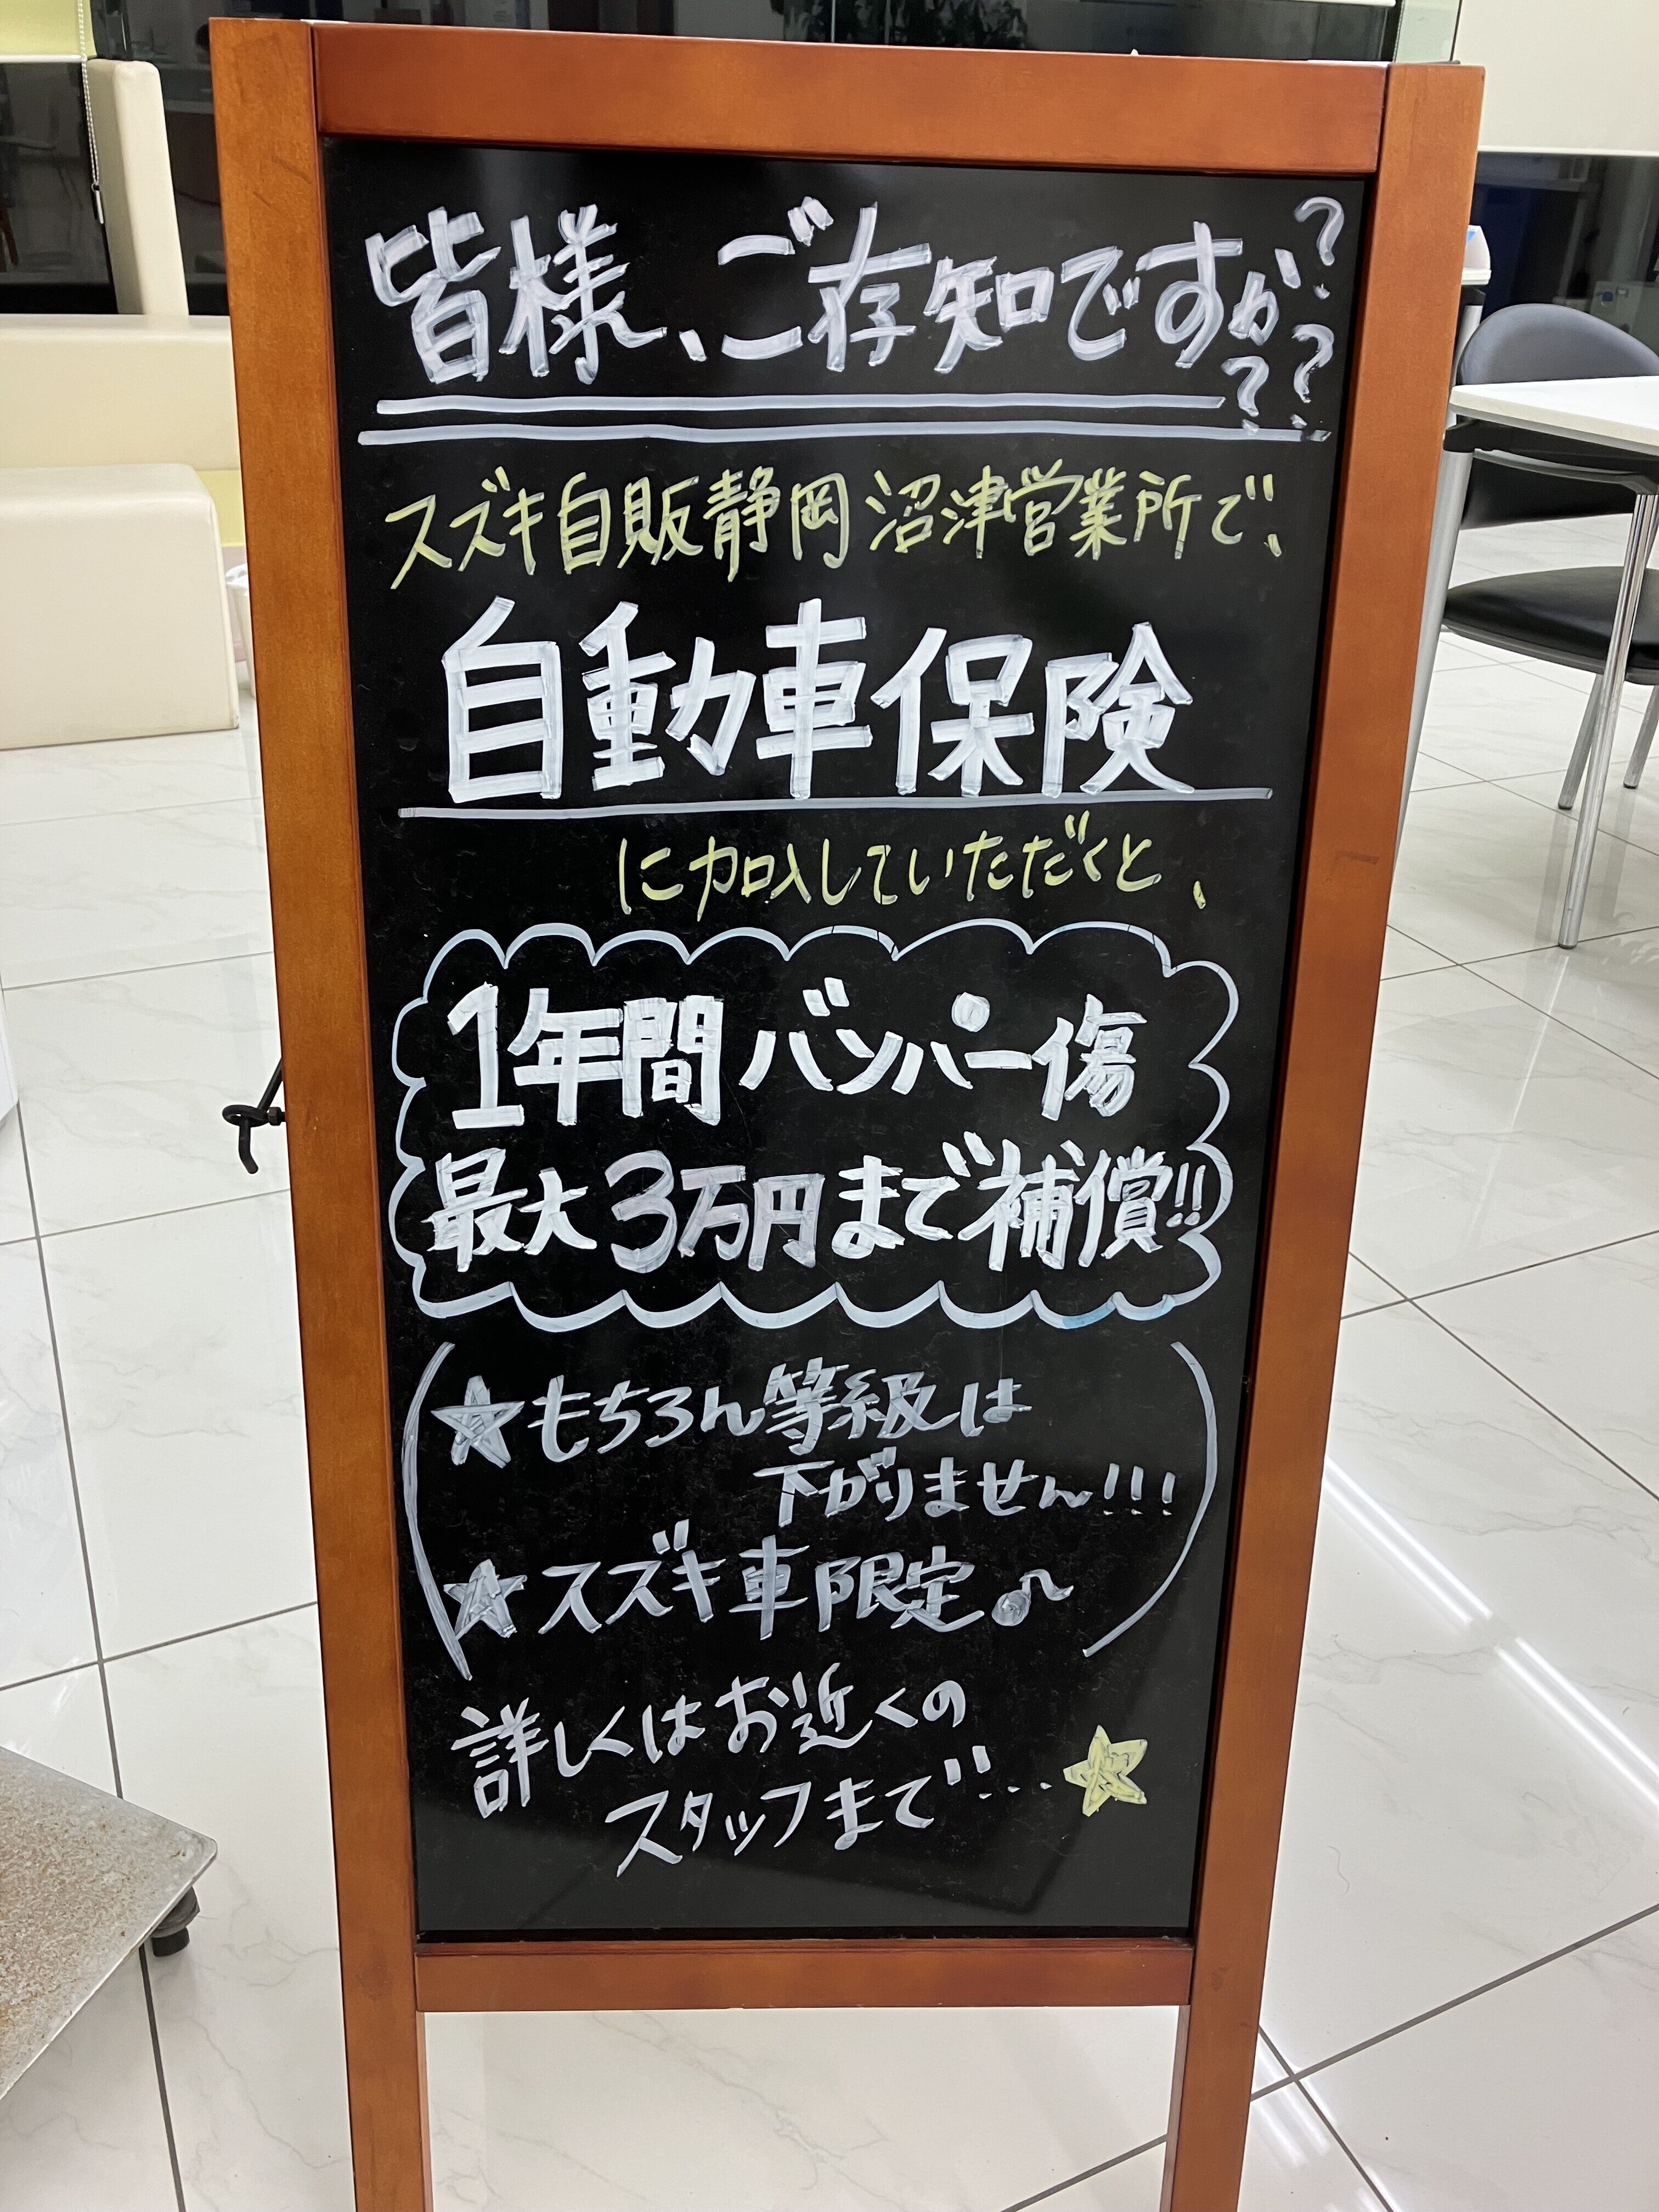 皆様、ご存知ですか???
スズキ自販静岡 沼津営業所で、
自動車保険
に加入していただくと、
1年間バンパー傷
最大3万円まで補償!!
(★もちろん等級は
下がりません!!!
★スズキ車限定♪)
詳しくはお近くの
スタッフまで…★